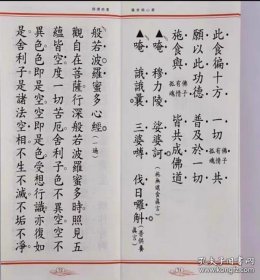 此食徧十方 一切 佛子 有情 孤魂 共
願以此功德 普及於一切
施食與 佛子 有情 孤魂 皆共成佛道
▲唵 穆力陵 娑婆訶(此無遮食真言)
▲唵 誐誐曩 三婆嚩 伐日囉斛(普供養真言)
般若波羅蜜多心經(一遍)
觀自在菩薩行深般若波羅蜜多時照見五
蘊皆空度一切苦厄舍利子色不異空空不
異色色即是空空即是色受想行識亦復如
是舍利子是諸法空相不生不滅不垢不淨